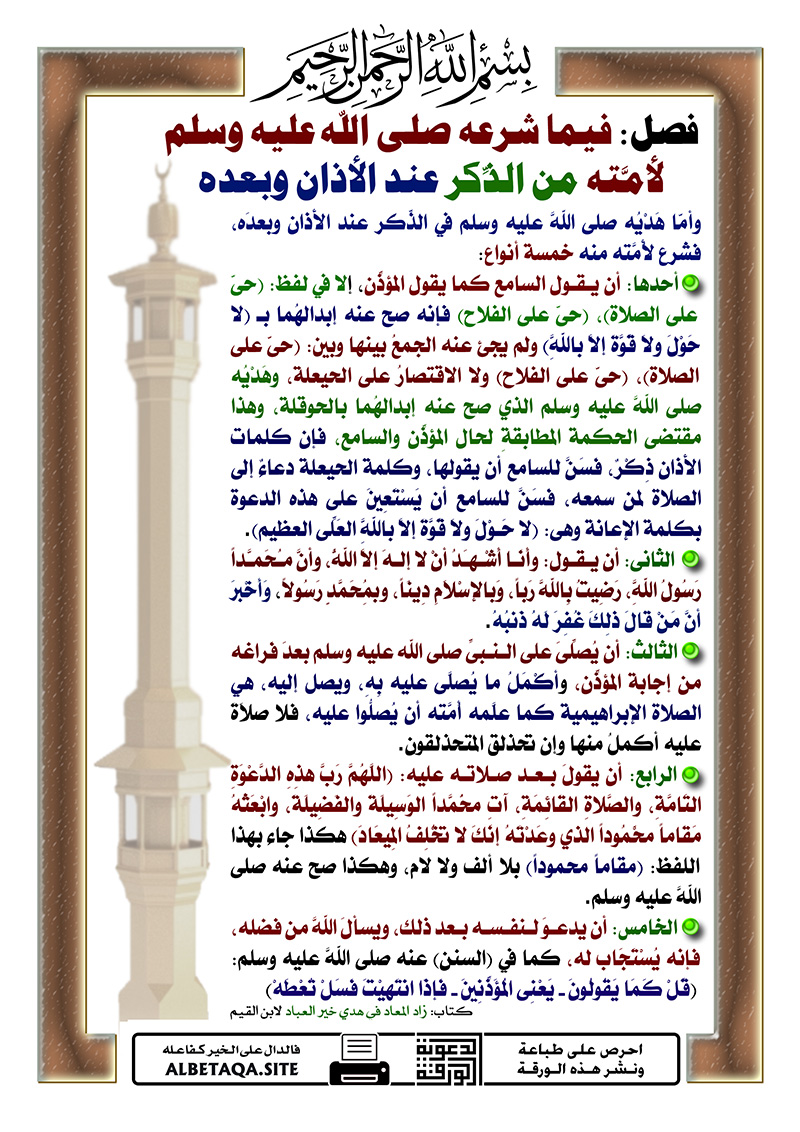 بِسْمِ اللَّهِ الرَّحْمَٰنِ الرَّحِيمِ
فصل: فيما شرعه صلى الله عليه وسلم
لأمَّته من الذِّكر عند الأذان وبعده
وأمَا هَدْيُه صلى اللَّهَ عليه وسلم في الذَّكر عند الأذان وبعدَه،
فشرع لأمَّته منه خمسة أنواع:
أحدها: أن يـقـول السامع كما يقول المؤذّن، إلا في لفظ: (حىَ
على الصلاة)، (حىَ على الفلاح) فإنه صح عنه إبدالهُما بـ (لا
حَوْلَ ولا قوَّة إلاَ باللَهَِ) ولم يجئ عنه الجمعُ بينها وبين: (حىَ على
الصلاة)، (حىَ على الفلاح) ولا الاقتصارُ على الحيعلة، وهَدْيُه
صلى اللَّهَ عليه وسلم الذي صح عنه إبدالهُما بالحوقلة، وهذا
مقتضى الحكمة المطابقةِ لحال المؤذّن والسامع، فإن كلمات
الأذان ذِكْرٌ، فسَنَّ للسامع أن يقولها، وكلمة الحيعلة دعاءٌ إلى
الصلاة لمن سمعه، فسَنَّ للسامع أن يَسْتَعِينَ على هذه الدعوة
بكلمة الإعانة وهى: (لا حَـوْلَ ولا قوَّة إلاَ باللَّهَِ العَلَى العظيم).
الثانى: أن يـقـول: وأنـا أشْـهَـدُ أنْ لا إلـهَ إلاَ اللَّهَُ، وأنَّ مُـحَـمَّـداً
رَسُولُ اللَّهَِ، رَضِيتُ بِاللَّهَِ رَباً، وَبالإسْلامِ دِيناً، وبمُحَمَّدٍ رَسُولاً، وَأخْبرَ
أنَّ مَنْ قالَ ذلِكَ غُفِرَ لهُ ذنبُهُ.
الثالث: أن يُصلّىَ على الـنـبىِّ صلى الله عليه وسلم بعدَ فراغه
من إجابة المؤذّن، وأكْمَلُ ما يُصلّى عليه بِهِ، ويصل إليه، هي
الصلاة الإبراهيمية كما علَّمه أمَّته أن يُصلُّوا عليه، فلا صلاة
عليه أكملُ منها وإن تحذلق المتحذلقون.
الرابع: أن يقولَ بـعـد صـلاتـه عليه: (اللَّهُمَّ رَبَّ هذِهِ الدَّعْوَةِ
التَّامَّةِ، والصَّلاةِ القَائِمَةِ، آت محُمَّداً الوَسِيلَة والفَضِيلَة، وابْعَثهُ
مَقاماً محْمُوداً الذي وعَدْتهُ إنّكَ لا تخْلِفُ الميعَادَ) هكذا جاء بهذا
اللفظ: (مقاماً محموداً) بلا ألف ولا لام، وهكذا صح عنه صلى
اللَّهَ عليه وسلم.
الخامس: أن يدعـوَ لـنـفـسـه بـعـد ذلك، ويسألَ اللَّهَ من فضله،
فإنه يُسْتَجَاب له، كما في (السنن) عنه صلى اللَّهَ عليه وسلم:
(قلْ كَمَا يَقُولونَ ـ يَعْنى المُؤَذّنِينَ ـ فإذا انتهيْتَ فسَلْ تعْطَهْ)
كتاب: زاد المعاد فى هدي خير العباد لابن القيم
احرص على طباعة
ونـشـر هـذه الـورقـة
الدعوية
الورقة
فالدال على الخير كفاعله
ALBETAQA.SITE